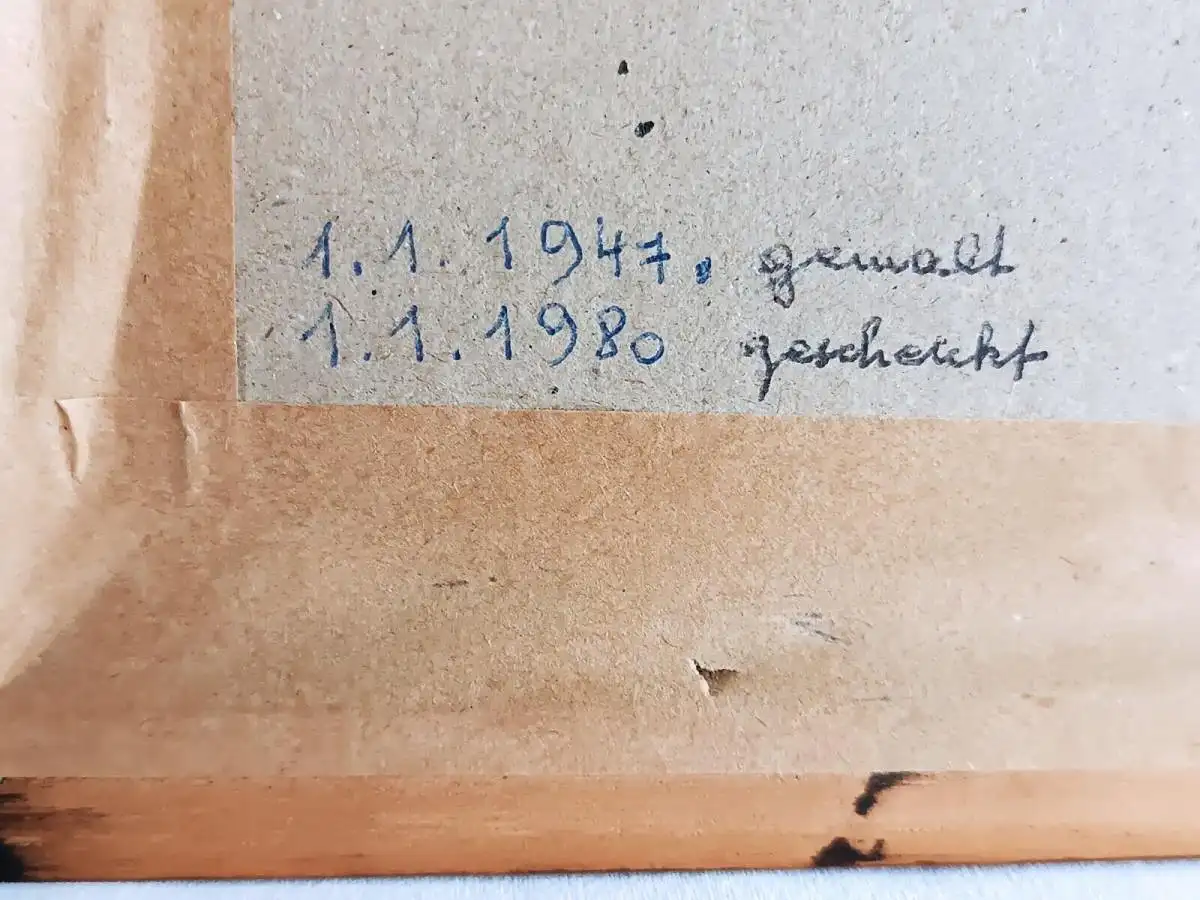 1.1.1947. gemalt
1.1.1980 geschenkt